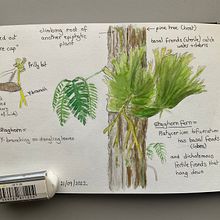 ed out
re cap"
frilly bit
rhizomorph
climbing root of
another epiphytic
plant
pine tree (host)
basal fronds (sterile) catch
water + debris
staghorn:
Y-branching no dangling leaves
@staghorn fern =
Platycerium bifurcatum
has basal fronds
(lobes)
and dichotomous
fertile fronds that
hang down
21/09/2022